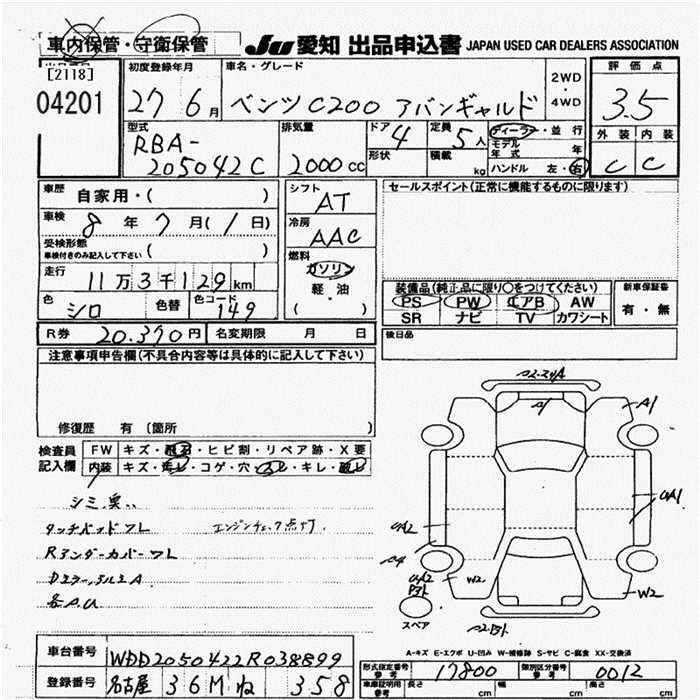 車内保管・守衛保管
JU 愛知 出品申込書 JAPAN USED CAR DEALERS ASSOCIATION
[2118]
04201
初度登録年月
27 6月
車名・グレード
ベンツ C200 アバンギャルド
2WD
・
4WD
評価点
3.5
外装 内装
C C
型式
RBA-
205042C
排気量
2000cc
ドア 4
形状
定員 5人
積載 kg
ディーラー・並行
モデル年式 年
ハンドル 左・右
車歴 自家用・( )
車検 8年 7月(1日)
受検形態
車検付きのみ記入して下さい ( )
走行 11万3千129km
色 シロ 色替 色コード 149
シフト AT
冷房 AAC
燃料
ガソリン
軽・油
( )
セールスポイント(正常に機能するものに限ります)
装備品(純正品に限り○をつけてください)
PS PW エアB AW
SR ナビ TV カワシート
新車保証書
有・無
R券 20.370円 名変期限 月 日
後日品
注意事項申告欄(不具合内容等は具体的に記入して下さい)
修復歴 有 〔箇所 〕
検査員記入欄
FW キズ・飛石・ヒビ割・リペア跡・X要
内装 キズ・汚レ・コゲ・穴・スレ・キレ・破レ
シミ 臭
タッチパッドワレ エンジンチェック点灯
Rアンダーカバーワレ
各A.U
A2
A1
A1
UA1
UA2
UA2
W2
W2
スペア
A-キズ E-エクボ U-凹み W-補修跡 S-サビ C-腐食 XX-交換済
車台番号 WDD2050422R038899
登録番号 名古屋 36M ね 358
形式指定番号
参考 17800
類別区分番号
参考 0012
車庫証明用
参考
長さ cm 幅 cm 高さ cm